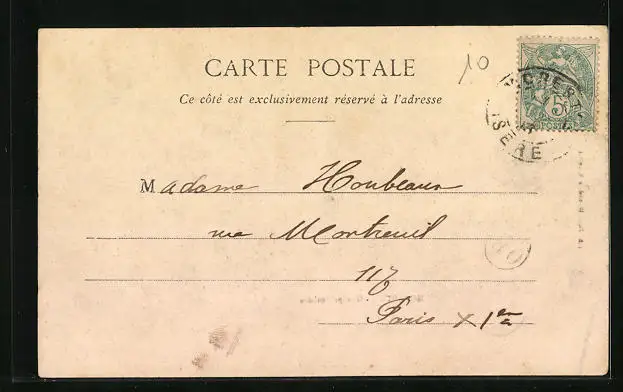 10
CARTE POSTALE
Ce côté est exclusivement réservé à l'adresse
5
ISÈRE
Madame Houbeaux
rue Montreuil
117
Paris X 1er